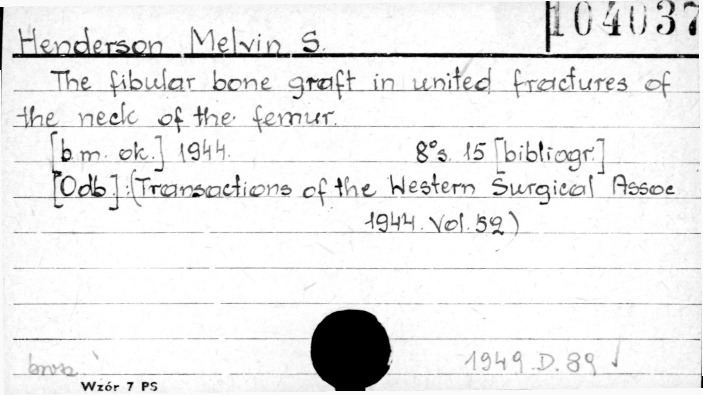 104037
Henderson Melvin S.
The fibular bone graft in united fractures of
the neck of the femur.
[b.m. ok.] 1944. 8°s. 15 [bibliogr.]
[Odb.]: (Transactions of the Western Surgical Assoc
1944. Vol. 52)
1949.D.89
Wzór 7 PS